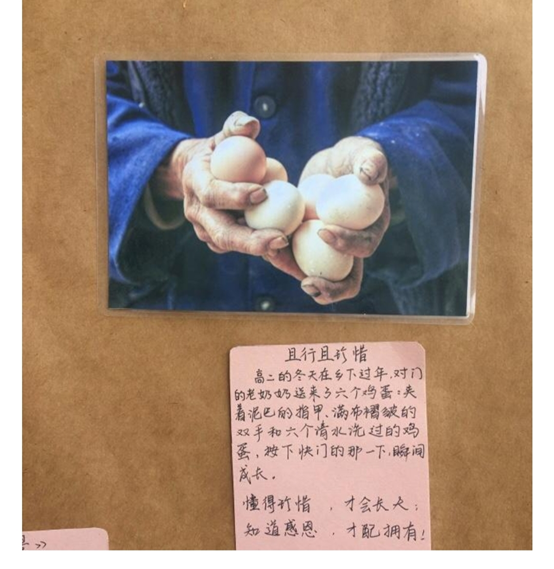 且行且珍惜
高二的冬天在乡下过年,对门
的老奶奶送来了六个鸡蛋:夹
着泥巴的指甲、满布褶皱的
双手和六个清水洗过的鸡
蛋,按下快门的那一下,瞬间
成长。
懂得珍惜,才会长大;
知道感恩,才配拥有!
》